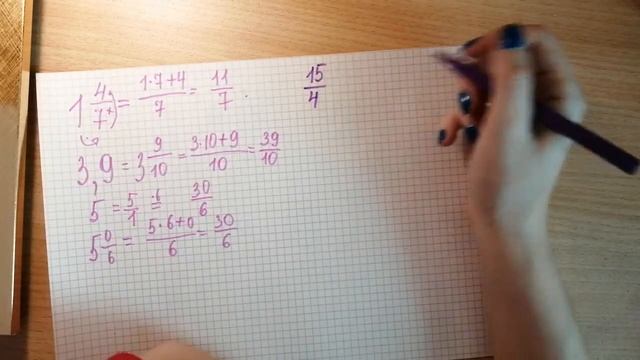 1 4/7 = (1·7+4)/7 = 11/7. 15/4
3,9 = 3 9/10 = (3·10+9)/10 = 39/10
5 = 5/1 ·6= 30/6
5 0/6 = (5·6+0)/6 = 30/6